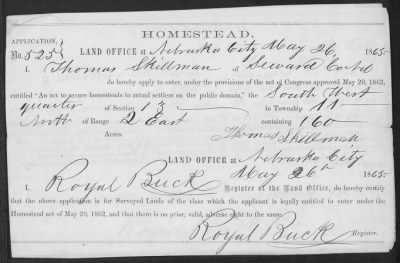 HOMESTEAD.
APPLICATION,
No. 525
LAND OFFICE at Nebraska City May 26, 1865
I, Thomas Skillman of Seward Co
do hereby apply to enter, under the provisions of the act of Congress approved May 20, 1862,
entitled "An act to secure homesteads to actual settlers on the public domain," the South West
quarter of Section 13 in Township 11
North of Range 2 East containing 160
Acres. Thomas Skillman
LAND OFFICE at Nebraska City
May 26th 1865
I, Royal Buck Register of the Land Office, do hereby certify
that the above application is for Surveyed Lands of the class which the applicant is legally entitled to enter under the
Homestead act of May 20, 1862, and that there is no prior, valid, adverse right to the same.
Royal Buck Register.